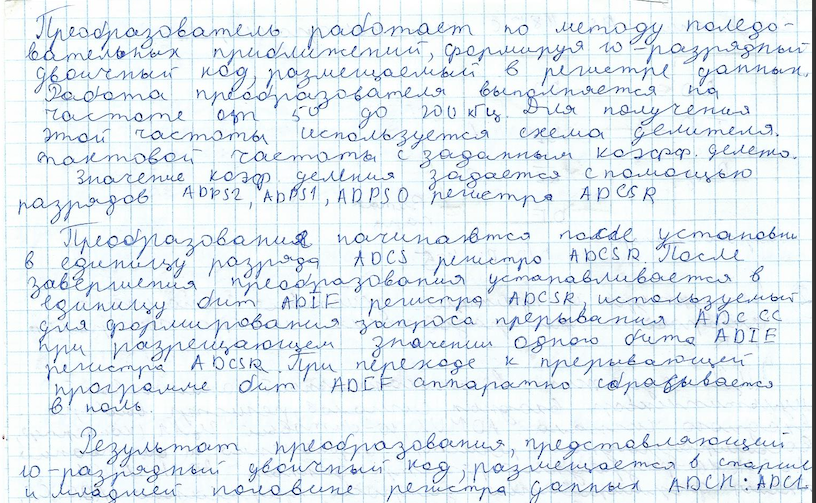 Преобразователь работает по методу поледо-
вательных приближений, формируя 10-разрядный
двоичный код, размещаемый в регистре данных.
Работа преобразователя выполняется на
частоте от 50 до 200 кГц. Для получения
этой частоты используется схема делителя.
тактовой частоты с заданным коэфф. делено.
Значение коэф. деления задается с помощью
разрядов ADPS2, ADPS1, ADPS0 регистра ADCSR
Преобразования начинаются после установки
в единицу разряда ADCS регистра ADCSR. После
завершения преобразования устанавливается в
единицу бит ADIF регистра ADCSR, используемый
для формирования запроса прерывания ADC CC
при разрещающем значении одного бита ADIF
регистра ADCSR. При переходе к прерывающей
программе бит ADIF аппаратно сбрасывается
в ноль.
Результат преобразования, представляющий
10-разрядный двоичный код, размещается в старшей
и младшей половине регистра данных ADCH:ADCL